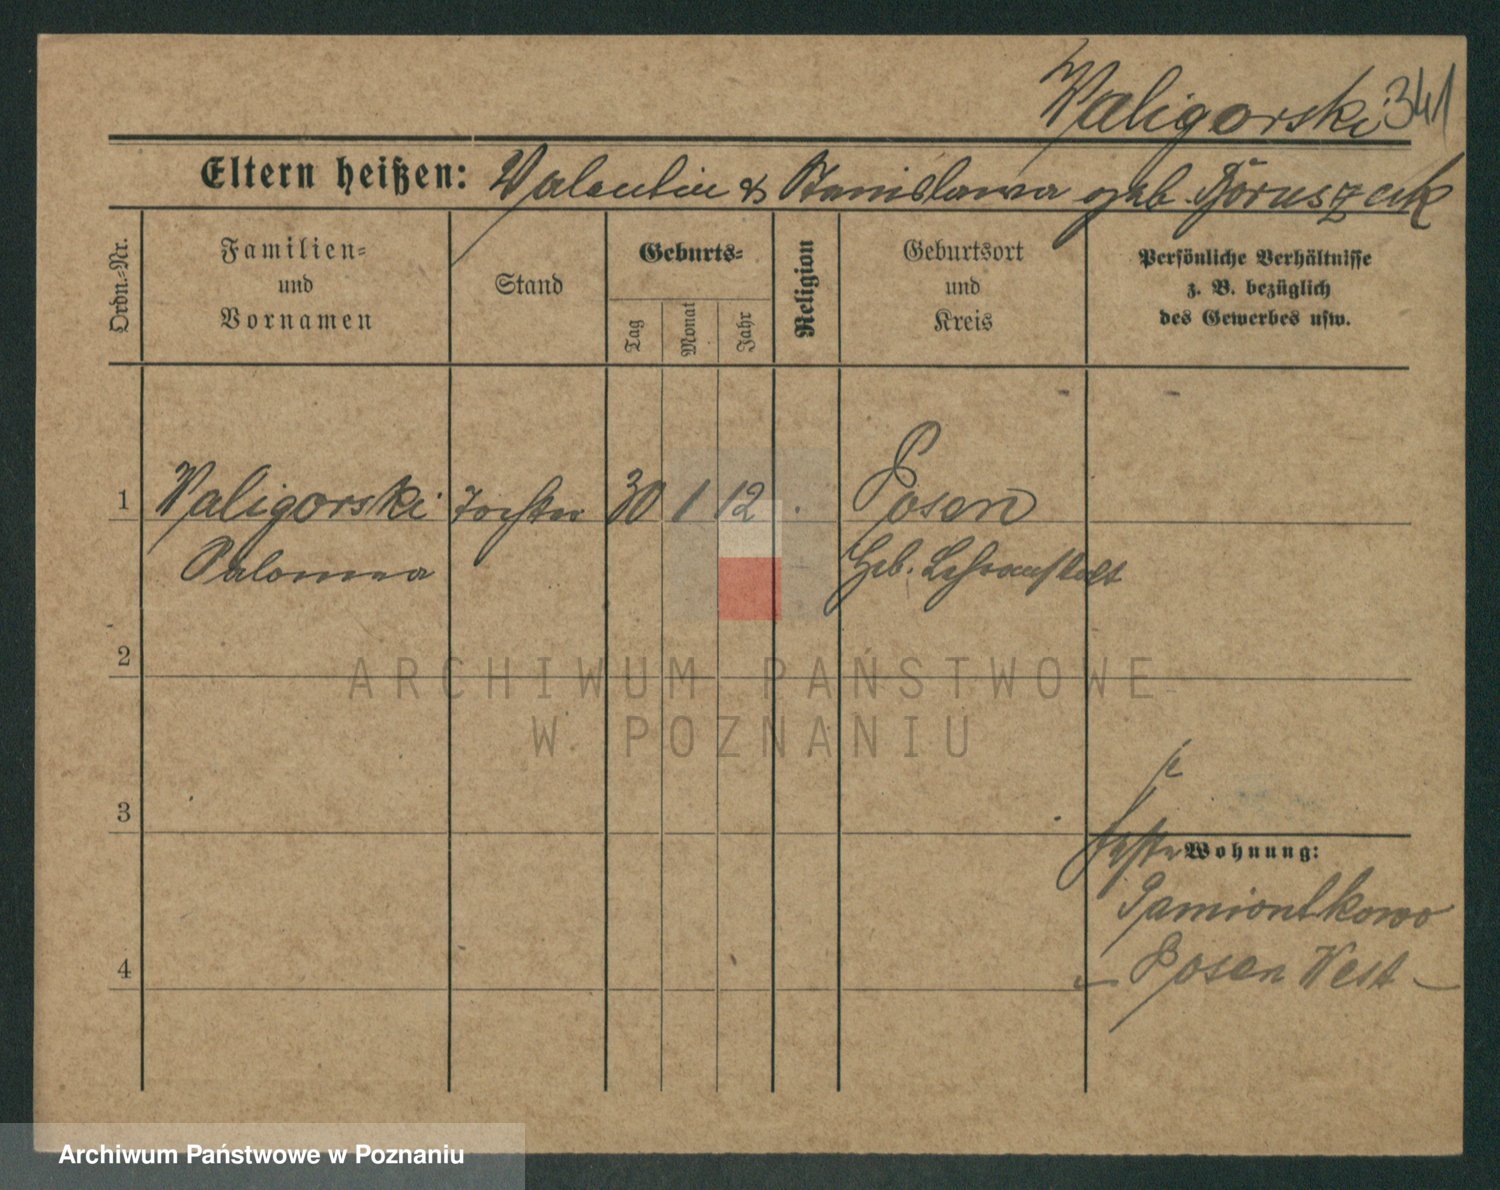 Waligorski 341
Eltern heißen: Valentin & Stanislawa geb.
Ordn.-Nr.
Familien-
und
Vornamen
Stand
Geburts-
Tag
Monat
Jahr
Religion
Geburtsort
und
Kreis
Persönliche Verhältnisse
z. B. bezüglich
des Gewerbes usw.
1 Waligorski Tochter 30 1 12 Posen
Palomea Heb. Lehranstalt
2
ARCHIWUM PAŃSTWOWE
W POZNANIU
3
Wohnung:
Pamiontkowo
4 Posen West
Archiwum Państwowe w Poznaniu